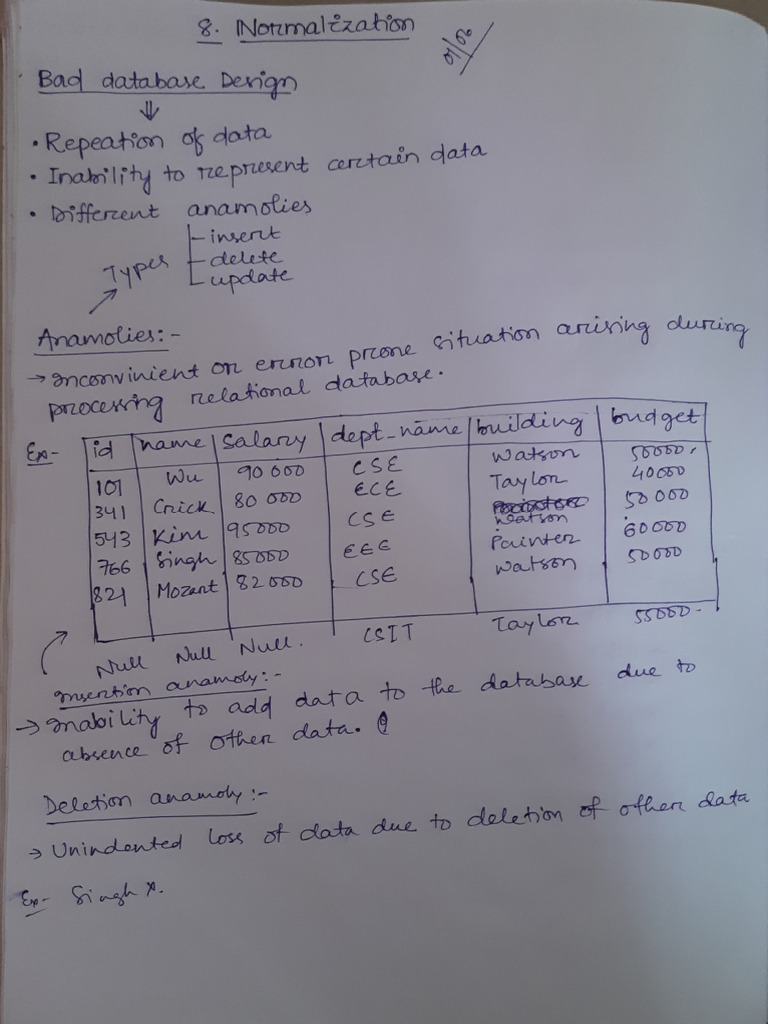 8. Normalization
Bad database Design
• Repeation of data
• Inability to represent certain data
• Different anamolies
Types
insert
delete
update
Anamolies:-
→ Inconvinient or error prone situation arising during
processing relational database.
Ex- id name salary dept_name building budget
101 Wu 90000 CSE Watson 50000
341 Crick 80000 ECE Taylor 40000
543 Kim 95000 CSE Watson 50000
766 Singh 85000 EEE Painter 60000
821 Mozart 82000 CSE Watson 50000
Null Null Null. CSIT Taylor 55000
Insertion anamoly:-
→ Inability to add data to the database due to
absence of other data.
Deletion anamoly:-
→ Unindented loss of data due to deletion of other data
Ex- Singh x.